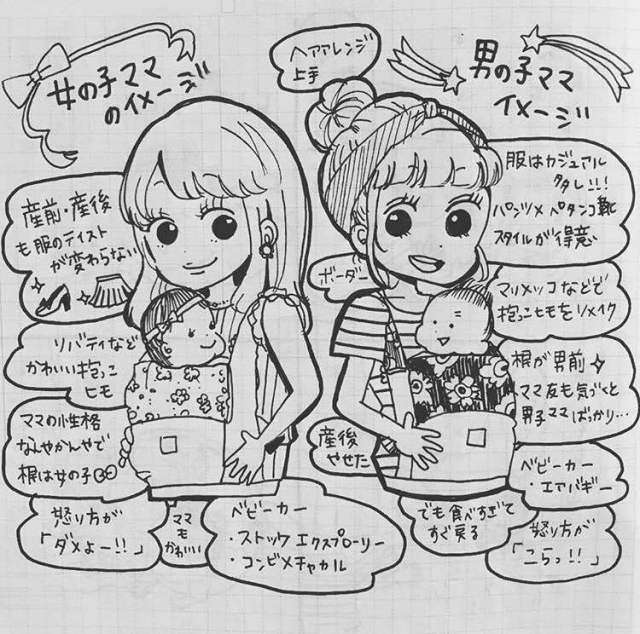 女の子ママ
のイメージ
産前・産後
も服のテイスト
が変わらない
リバティなど
かわいい抱っこ
ヒモ
ママの性格
なんやかんやで
根は女の子
怒り方が
「ダメよー!!」
ママ
も
かわいい
ベビーカー
・ストックエクスプローリー
・コンビメチャカル
ヘアアレンジ
上手
男の子ママ
イメージ
服はカジュアル
タレ!!!
パンツ×ペタンコ靴
スタイルが得意
ボーダー
マリメッコなどで
抱っこヒモをリメイク
根が男前
ママ友も気づくと
男子ママばっかり…
産後
やせた
でも食べすぎて
すぐ戻る
ベビーカー
・エアバギー
怒り方が
「こらっ!!」